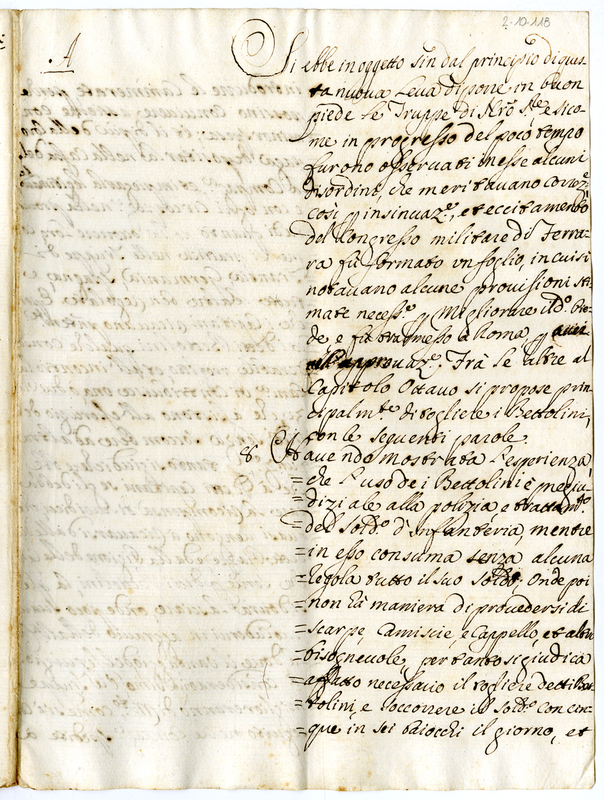 2-10-118
A
Si ebbe in oggetto sin dal principio di ques-
ta nuova Leva di porre in buon
piede le Truppe di Nro Sre, e sico-
me in progresso del poco tempo
furono osservati inesse alcuni
disordini, che meritavano correz.e
così p insinuaz.e, et eccitamento
del Congresso militare di Ferra-
ra fù formato un foglio, in cui si
notavano alcune provisioni sti-
mate necess.e p Migliorare il do
e fù trasmesso à Roma, p
approvaz.e. Frà le altre al
Capitolo Ottavo si propose prin-
cipalm.te di togliere i Bettolini,
con le seguenti parole.
8 Havendo mostrata l'esperienza,
= che l'uso de i Bettolini è pregiu-
= diziale alla polizia, e trattam.to
= del Sold.o d'Infanteria, mentre
= in esso consuma senza alcuna
= Regola tutto il suo Soldo; Onde poi
= non hà maniera di provedersi di
= scarpe, Camiscie, e Cappello, et altro
= bisognevole, pertanto si giudica
= affatto necessario il togliere detti Bet-
= tolini, e soccorrere il Sold.o con cin-
= que in sei baiocchi il giorno, et